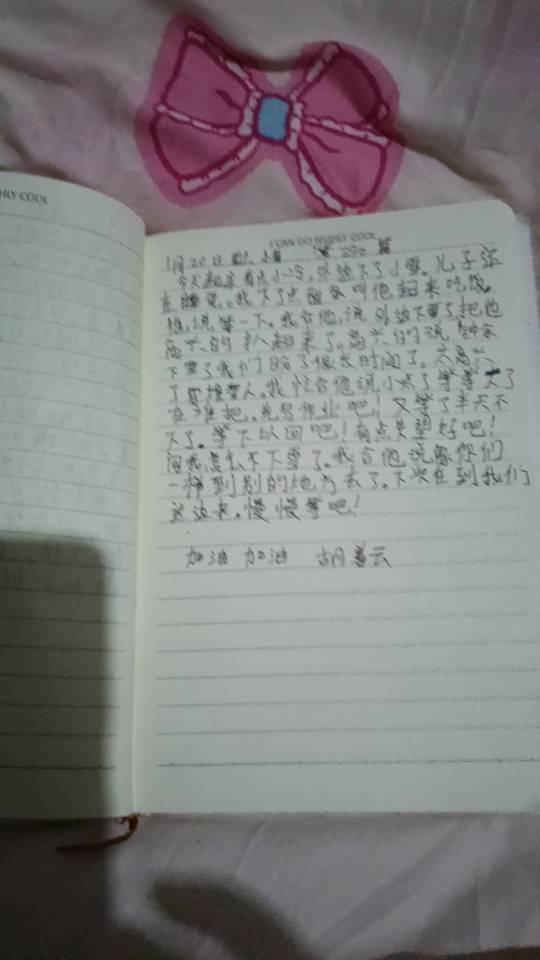 HLY COOL
I CAN DO HIGHLY COOL
1月20日 小雪 第290篇
今天起床有点小冷,外边下了小雪。儿子还
在睡觉。我下了点面条叫他起来吃饭
他说等一下。我合他说外边下雪了把他
高兴的 起来了。高兴的说
下雪了我们盼了很长时间了。太高兴
了 堆雪人。我忙合他说小点了等等大了
在堆把。先写作业吧!又等了半天不
下了。等下次回吧!有点失望好吧!
问我怎么不下雪了。我合他说像你们
一样到别的地方去了。下次在到我们
这边来。慢慢等吧!
加油 加油 胡善云